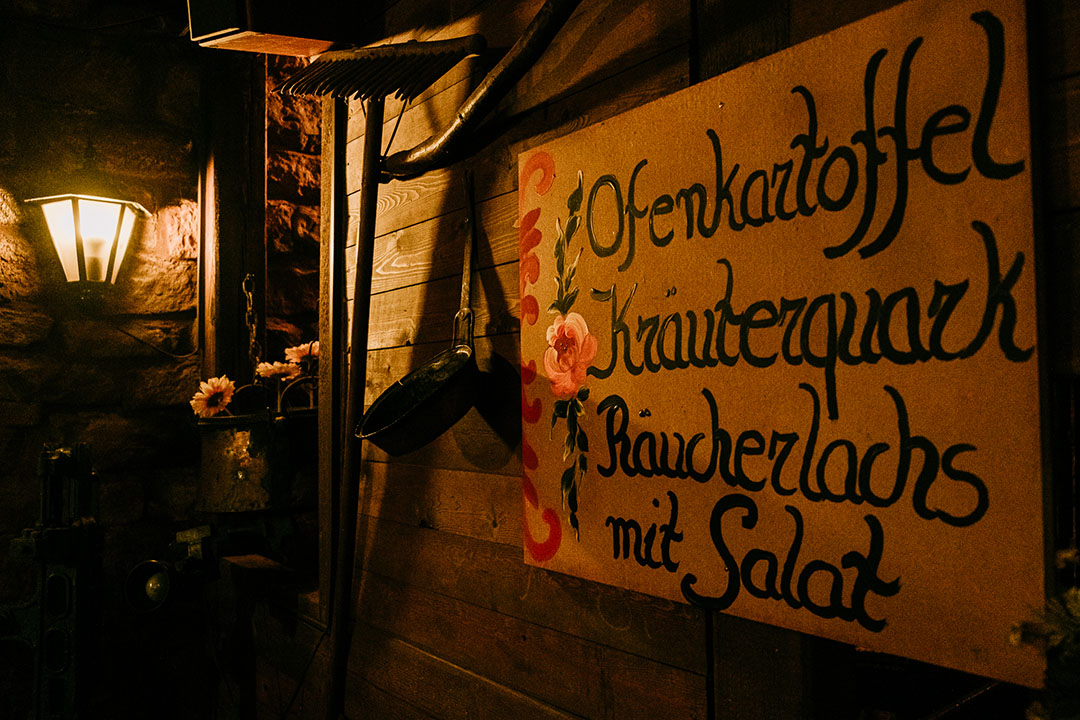 Ofenkartoffel
Kräuterquark
Räucherlachs
mit Salat